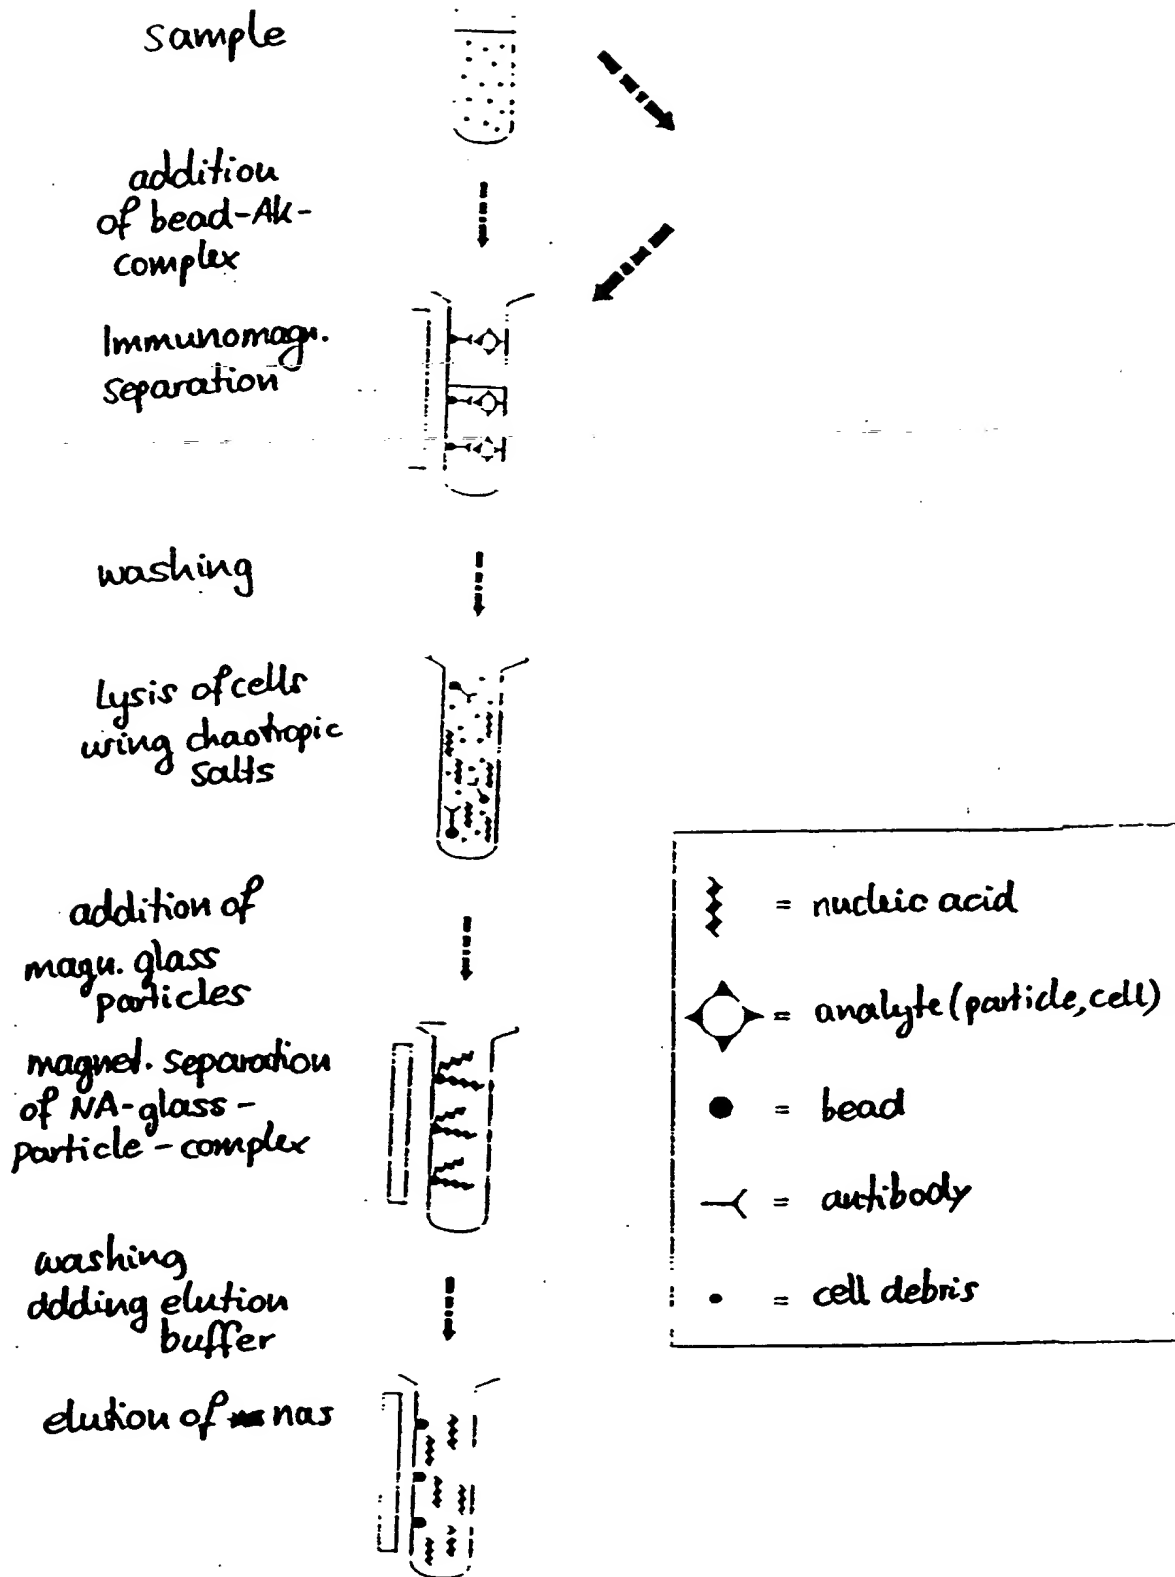 sample
addition
of bead-Ak-
complex
Immunomagn.
separation
washing
Lysis of cells
using chaotropic
salts
addition of
magn. glass
particles
magnet. separation
of NA-glass-
particle-complex
washing
ddding elution
buffer
elution of nas
= nucleic acid
= analyte (particle, cell)
= bead
= antibody
= cell debris